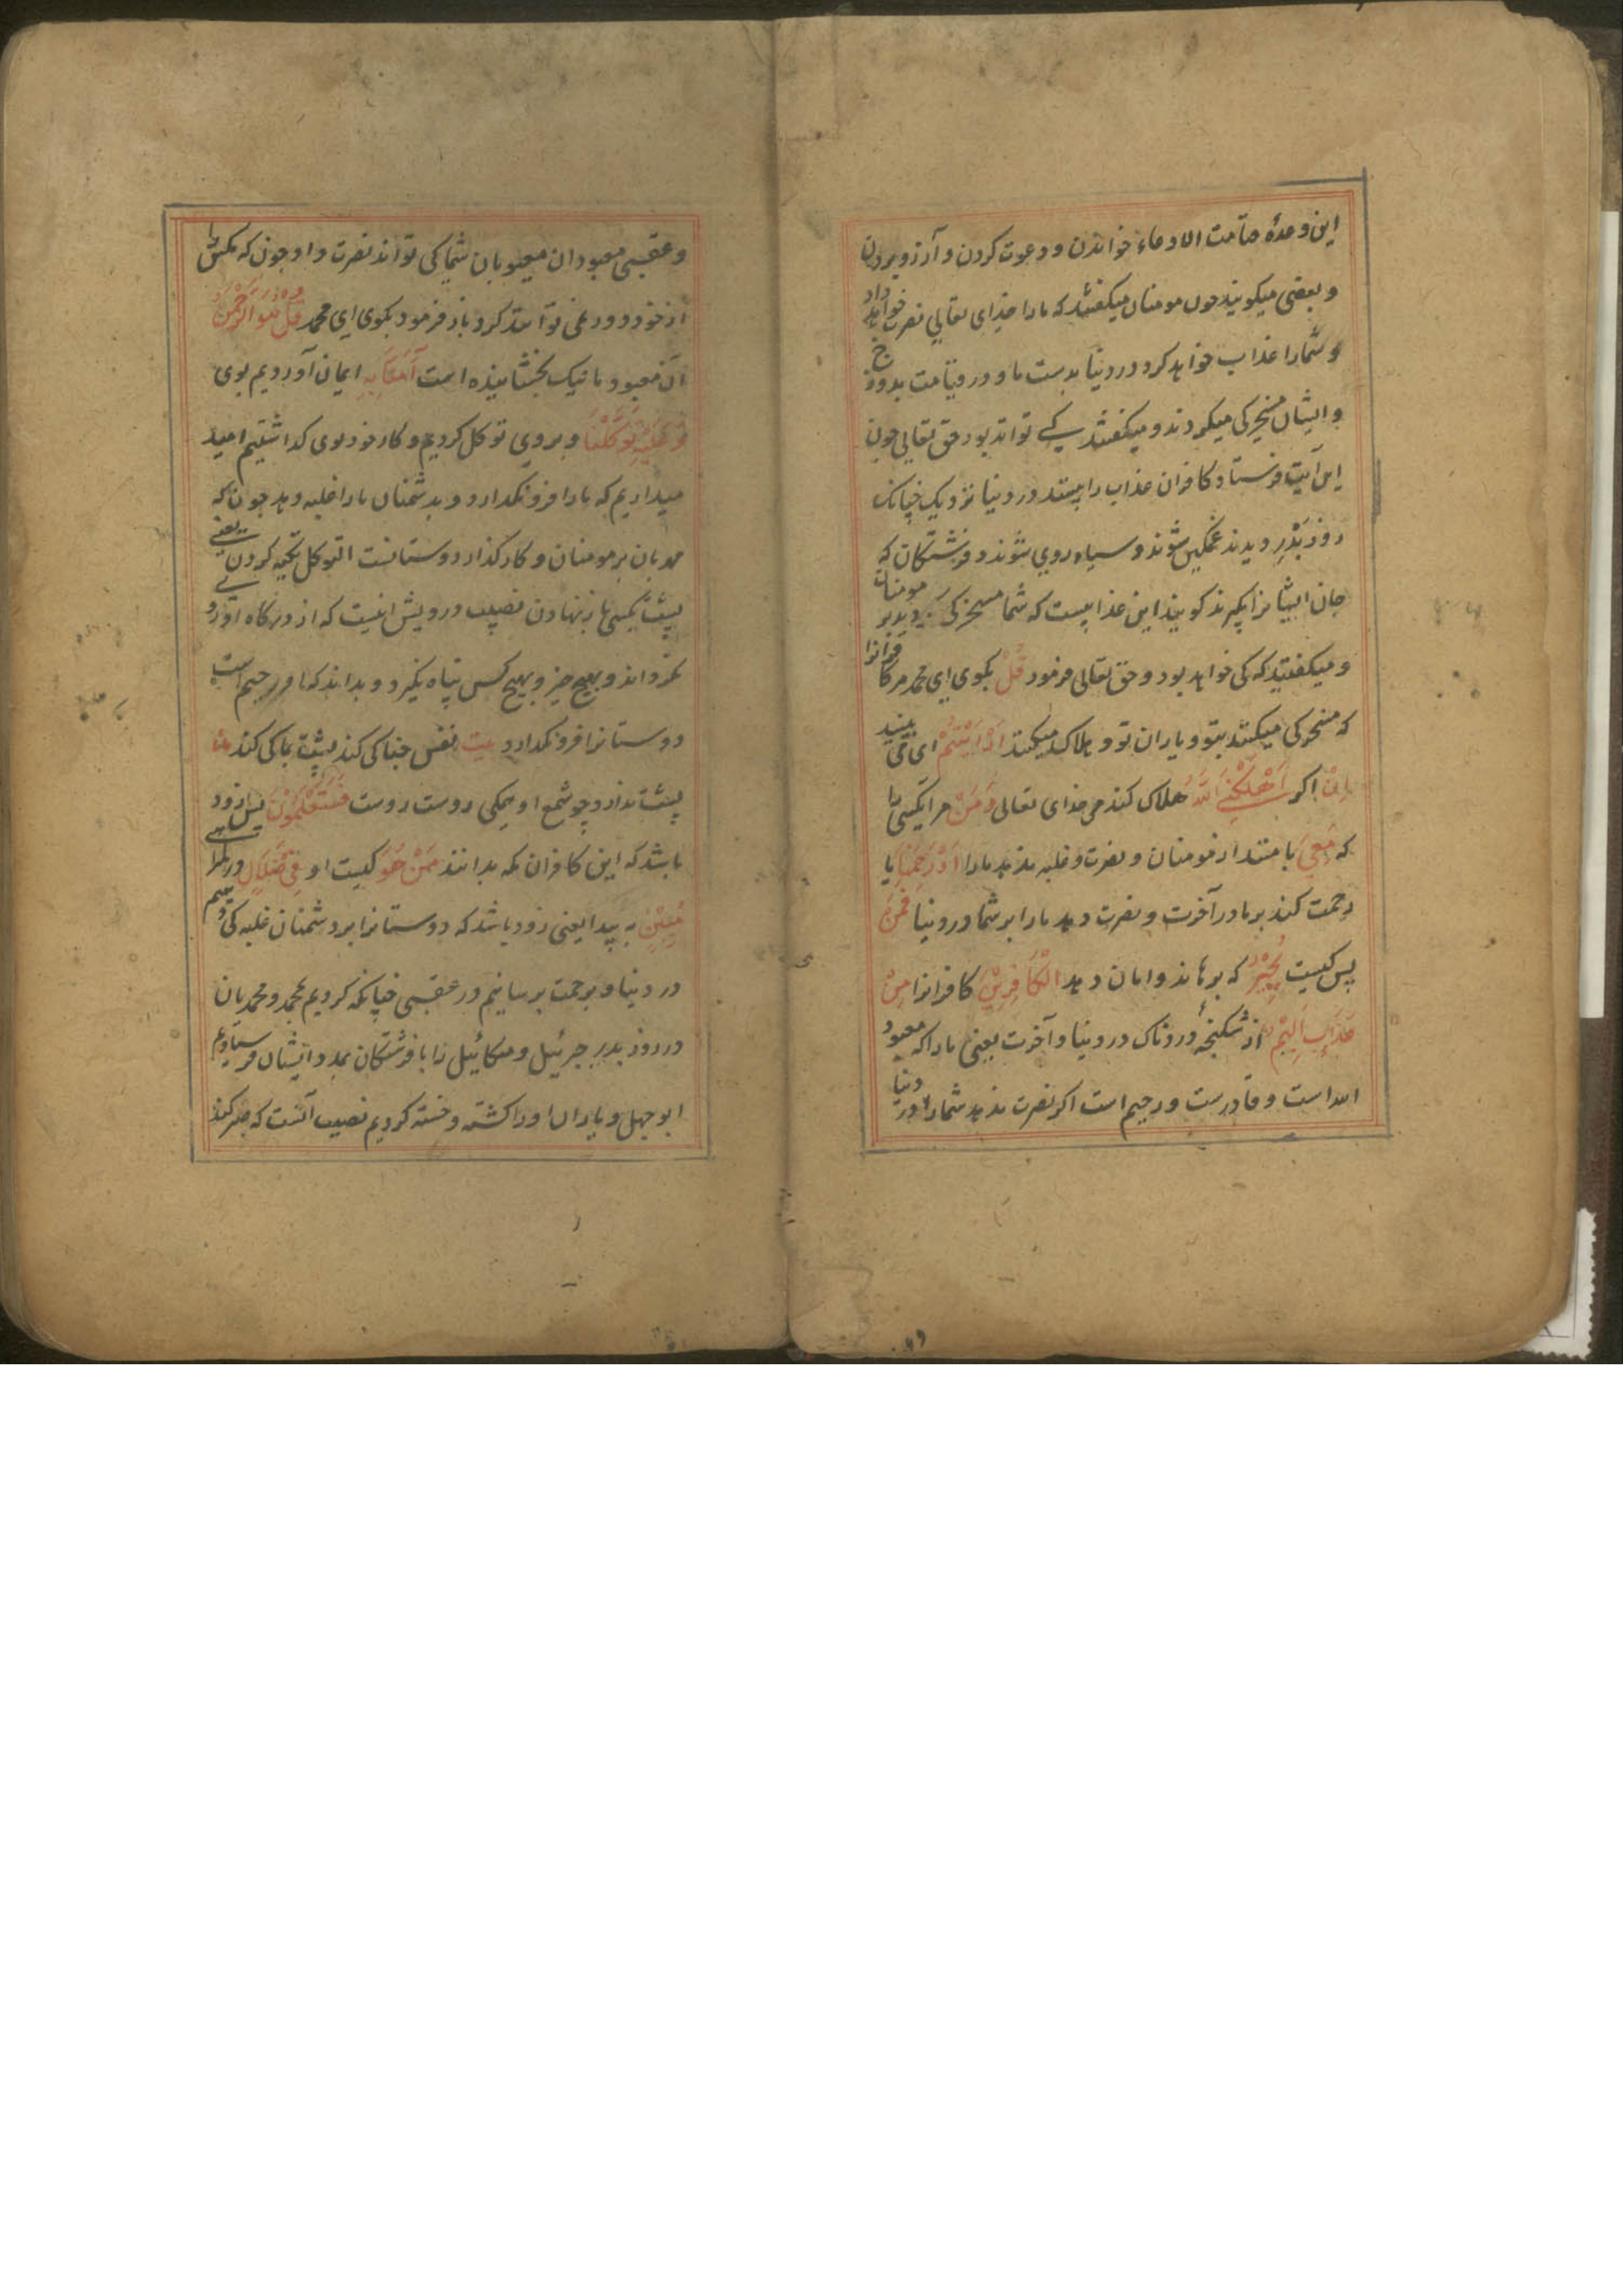 این وعدۀ صامت الادعاء خواندن و دعوت کردن و آرزو بردن
و بعضی میکویند چون مومنان میکفتند که مارا خدای تعالی نصرت خواهد داد
و شمارا عذاب خواهد کرد در دنیا بدست ما و در قیامت بدوزخ
و ایشان مسخرکی میکردند و میکفتند کی تواند بود حق تعالی چون
این آیت فرستاد کافران عذاب را ببینند در دنیا نزدیک چنانک
روز بَدْرِ دیدند غمکین شوند و سیاه روی شوند و فرشتکان که
جان ایشانرا بکیرند کویند این عذابیست که شما مسخرکی بر مومنان
و میکفتید که کی خواهد بود و حق تعالی فرمود قُلْ بکوی ای محمد مر کافرانرا
که مسخرکی میکنند بتو و یاران تو و هلاک میکنند اَرَاَیْتُمْ ای می بینید
اِنْ اکر اَهْلَکَنِیَ اللّٰهُ هلاک کند مرا خدای تعالی وَمَنْ مر آنکسی را
که مَعِیَ با منند از مومنان و نصرت و غلبه ندهد مارا اَوْرَحِمَنَا یا
رحمت کند بر ما در آخرت و نصرت دهد مارا بر شما در دنیا فَمَنْ
پس کیست یُجِیْرُ که برهاند و امان دهد الْکَافِرِیْنَ کافرانرا مِنْ
عَذَابٍ اَلِیْمٍ از شکنجۀ دردناک در دنیا و آخرت یعنی مارا که معبود
الله است و قادرست و رحیم است اکر نصرت ندهد شمارا در دنیا
و عقبی معبودان معیوبان شما کی تواند نصرت داد چون که مکس را
از خود دور نمی توانند کرد باز فرمود بکوی ای محمد قُلْ هُوَ الرَّحْمٰنُ
آن معبود ما نیک بخشاینده است آمَنَّا بِهٖ ایمان آوردیم بوی
وَعَلَیْهِ تَوَکَّلْنَا و بروی توکل کردیم و کار خود بوی کذاشتیم امید
میداریم که مارا فرو نکذارد و بدشمنان مارا غلبه دهد چون که
مهربان بر مومنان و کارکذار دوستانست التوکل تکیه کردن یعنی
پشت بکسی باز نهادن نصیب درویش اینست که از درکاه او رو
نکرداند و بهیچ چیز و بهیچ کس پناه نکیرد و بداند که او رحیم است
دوستانرا فرو نکذارد بیت نفس خاکی کند پشت بماکی کند
پشت ندارد چو شمع او همکی روست روست فَسَتَعْلَمُوْنَ پس زود
باشد که این کافران مکه بدانند مَنْ هُوَ کیست او فِیْ ضَلَالٍ در کمراهی
مُبِیْنٍ پیدا یعنی زود باشد که دوستانرا بر دشمنان غلبه دهیم
در دنیا و برحمت برسانیم در عقبی چنانکه کردیم محمد و محمدیان
در روز بدر جبرئیل و میکائیل را با فرشتکان بمدد ایشان فرستادیم
ابو جهل و یاران او را کشته و خسته کردیم نصیب آنست که صبر کند